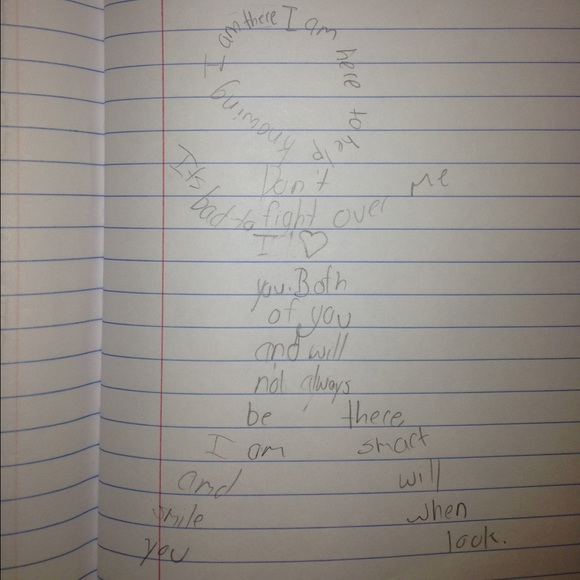 I am there I am here to help knowing
Don't
Its bad to fight over me
I ♡
you. Both
of you
and will
not always
be there,
I am smart
and will
smile when
you look.